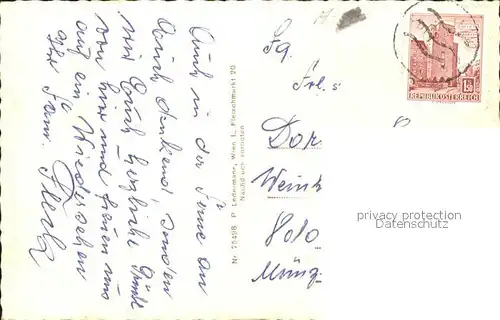 Auch in der Ferne an
Euch denkend, senden
wir Euch herzliche Grüße
von hier und freuen uns
auf ein Wiedersehen
Ihr
Fam.
Nr. 25498 P. Ledermann, Wien I., Fleischmarkt 20
Nachdruck verboten
REPUBLIK ÖSTERREICH
Fa.
Frl. s
Dor
Weink
Holo
privacy protection
watermark